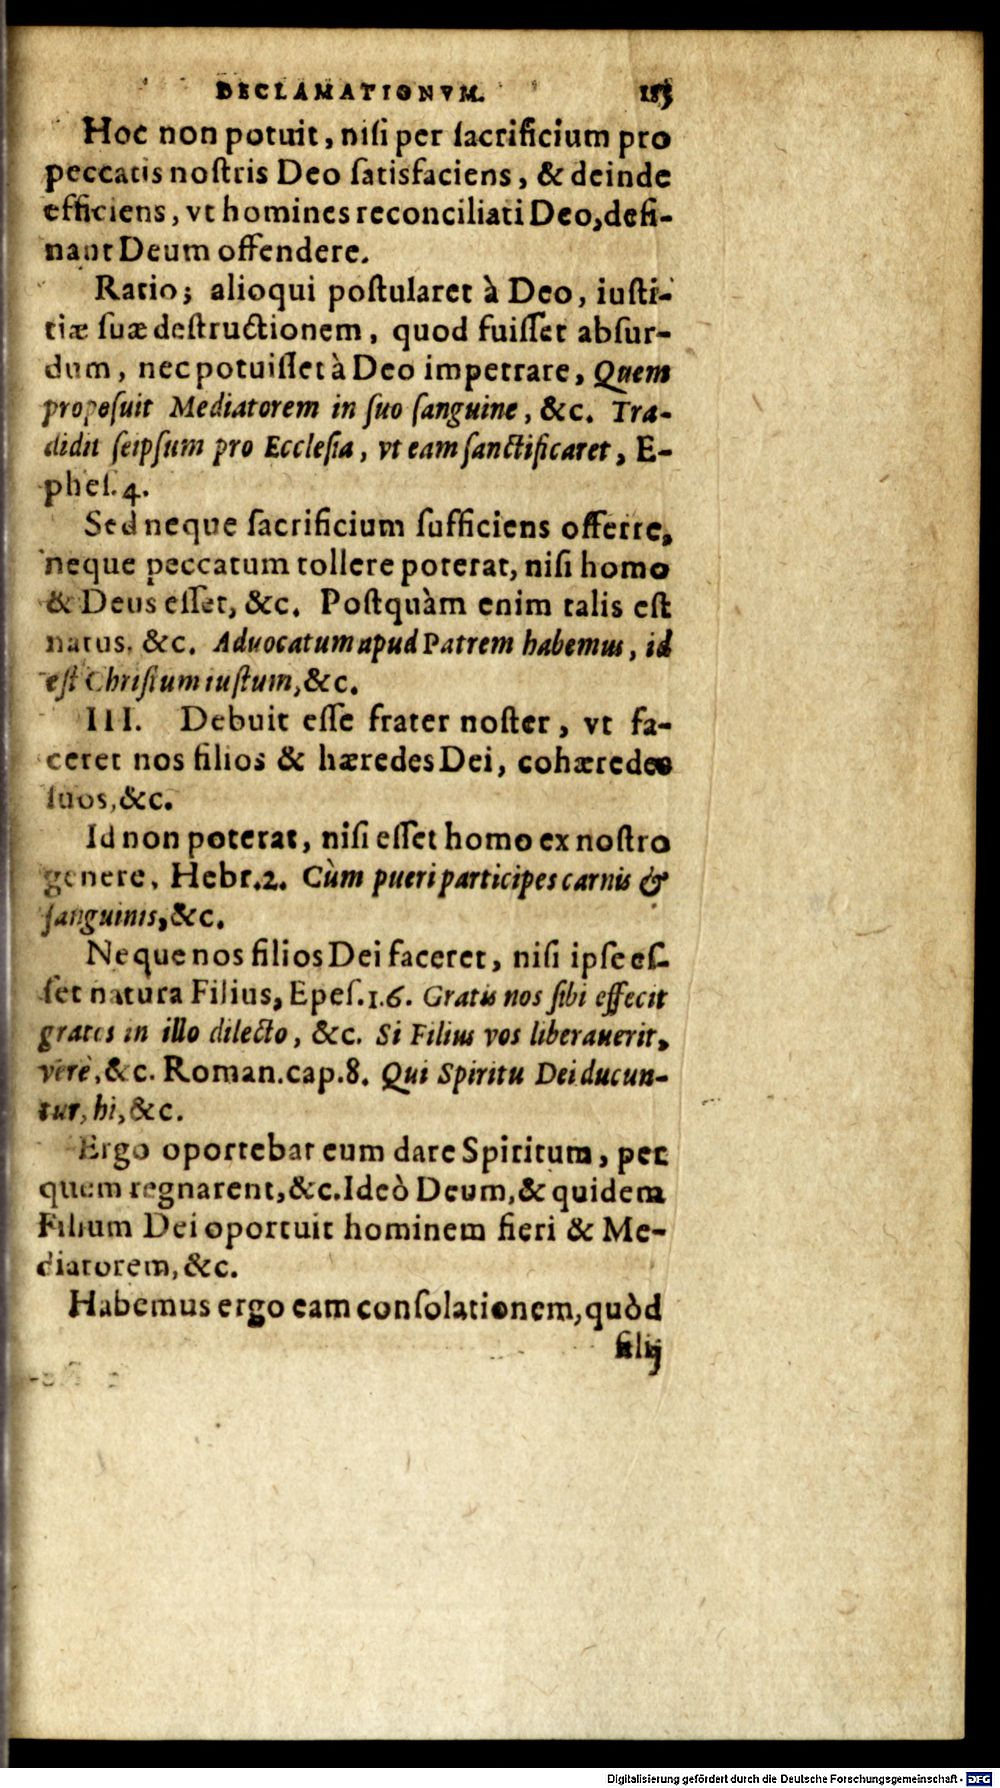 DECLAMATIONVM.
Hoc non potuit, nisi per sacrificium pro
peccatis nostris Deo satisfaciens, & deinde
efficiens, vt homines reconciliati Deo, desi-
nant Deum offendere.
Ratio; alioqui postularet à Deo, iusti-
tiæ suæ destructionem, quod fuisset absur-
dum, nec potuisset à Deo impetrare, Quem
proposuit Mediatorem in suo sanguine, &c. Tra-
didit seipsum pro Ecclesia, vt eam sanctificaret, E-
phes. 4.
Sed neque sacrificium sufficiens offerre,
neque peccatum tollere poterat, nisi homo
& Deus esset, &c. Postquàm enim talis est
natus, &c. Aduocatum apud Patrem habemus, id
est Christum iustum, &c.
III. Debuit esse frater noster, vt fa-
ceret nos filios & hæredes Dei, cohæredes
suos, &c.
Id non poterat, nisi esset homo ex nostro
genere, Hebr. 2. Cùm pueri participes carnis &
sanguinis, &c.
Neque nos filios Dei faceret, nisi ipse es-
set natura Filius, Epes. 1.6. Gratis nos sibi effecit
gratos in illo dilecto, &c. Si Filius vos liberauerit,
verè, &c. Roman. cap. 8. Qui Spiritu Dei ducun-
tur, hi, &c.
Ergo oportebat eum dare Spiritum, per
quem regnarent, &c. Ideò Deum, & quidem
Filium Dei oportuit hominem fieri & Me-
diatorem, &c.
Habemus ergo eam consolationem, quòd
filij
Digitalisierung gefördert durch die Deutsche Forschungsgemeinschaft - DFG